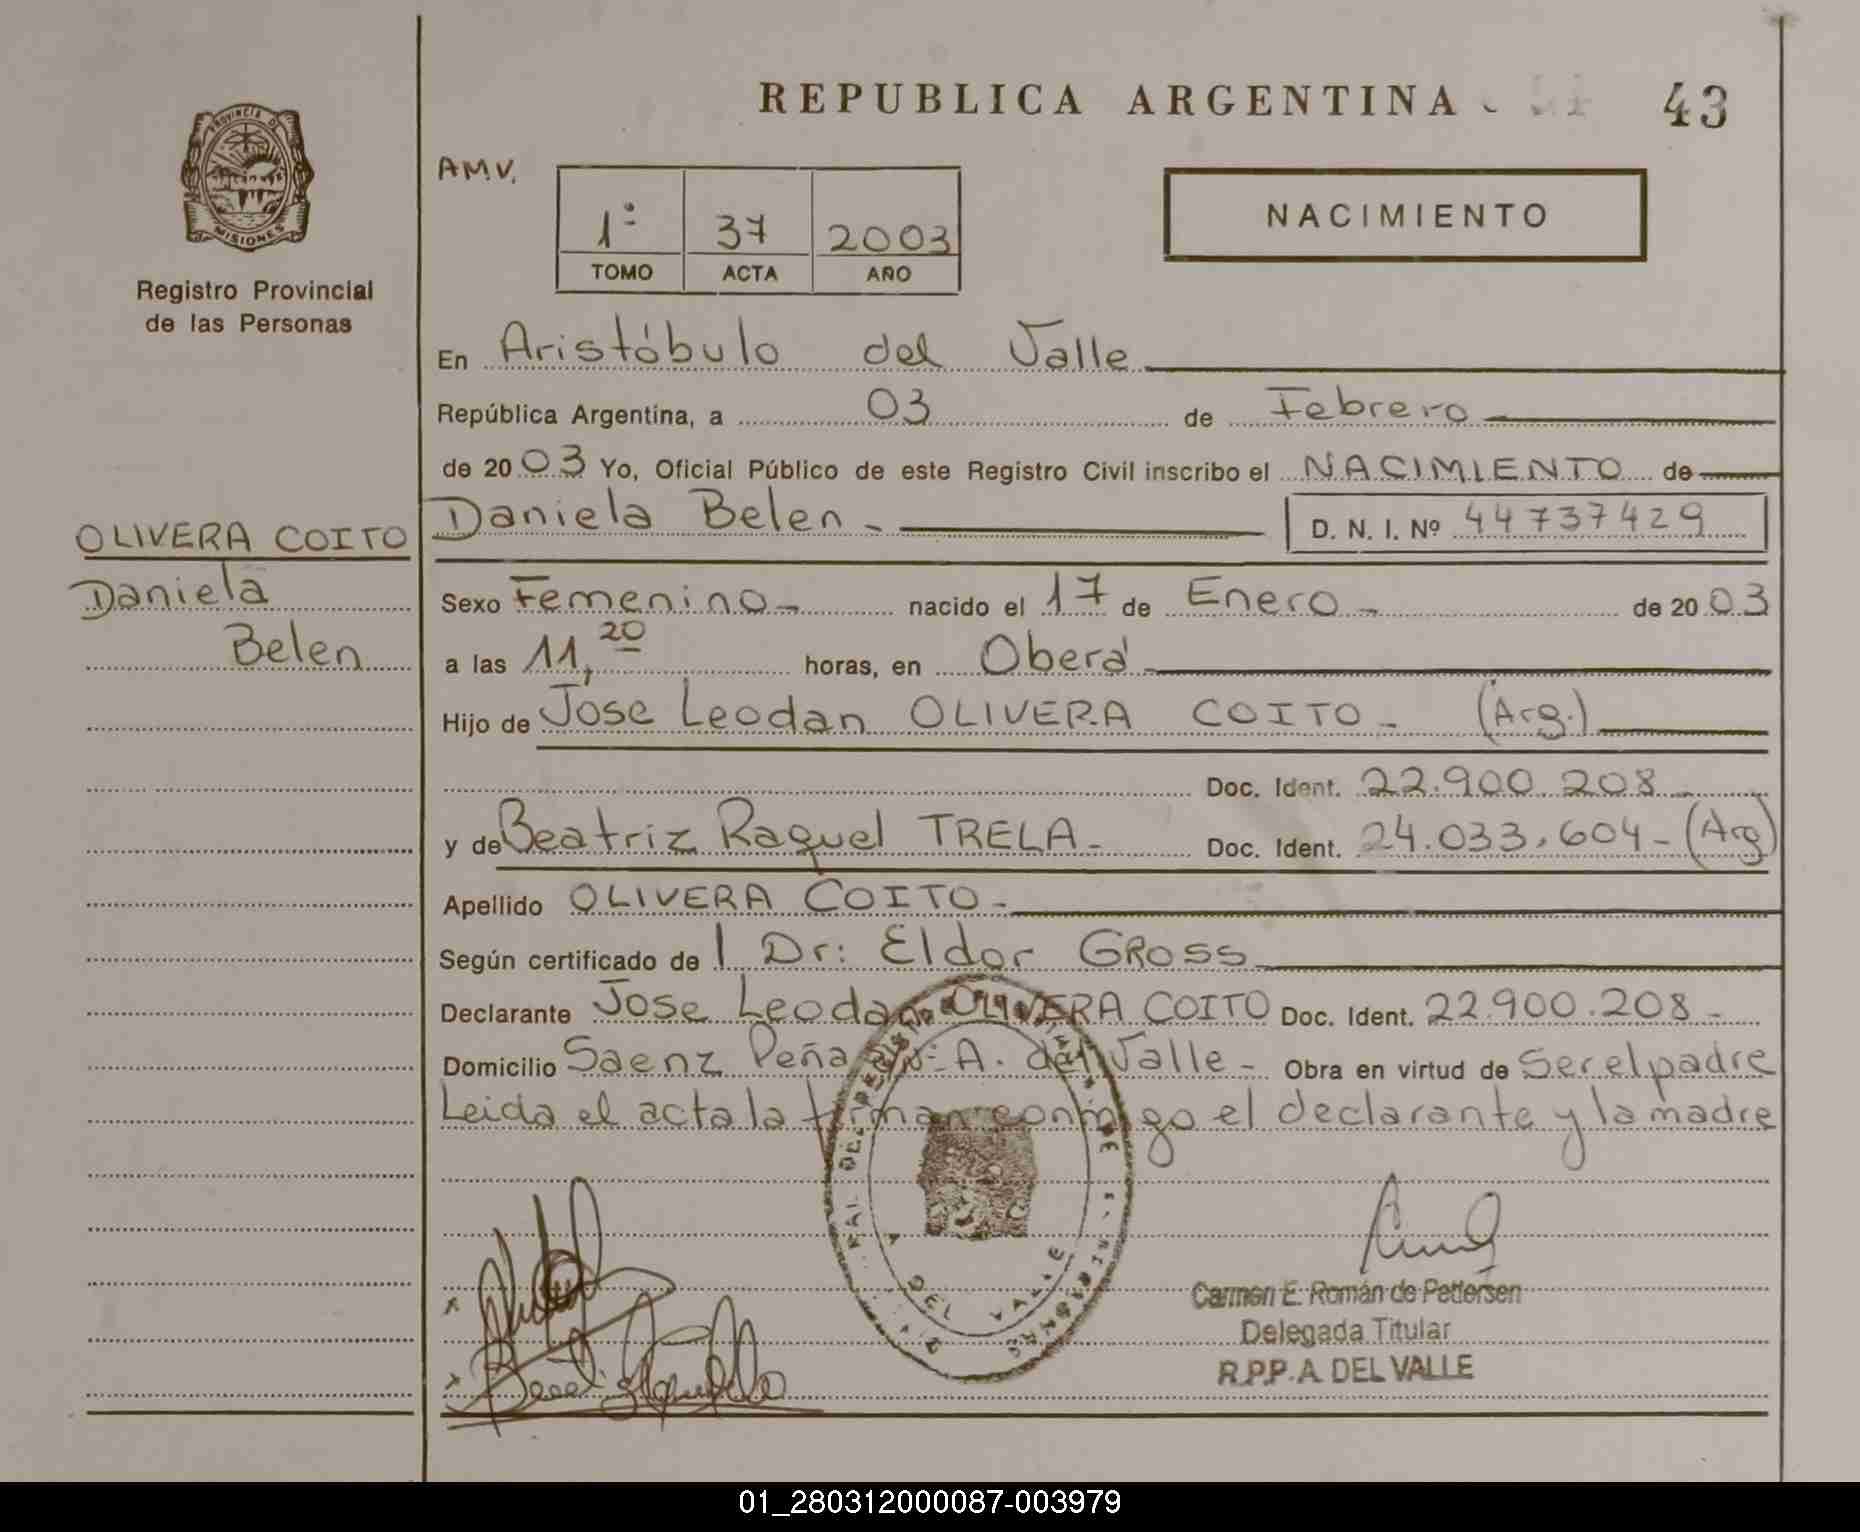 REPUBLICA ARGENTINA
43
PROVINCIA DE
MISIONES
Registro Provincial
de las Personas
A.M.V.
1º 37 2003
TOMO ACTA AÑO
NACIMIENTO
En Aristóbulo del Valle
República Argentina, a 03 de Febrero
de 20 03 Yo, Oficial Público de este Registro Civil inscribo el NACIMIENTO de
OLIVERA COITO
Daniela
Belen
Daniela Belen - D. N. I. Nº 44737429
Sexo Femenino - nacido el 17 de Enero - de 20 03
a las 11,20 horas, en Oberá
Hijo de Jose Leodan OLIVERA COITO - (Arg.)
Doc. Ident. 22.900.208 -
y de Beatriz Raquel TRELA - Doc. Ident. 24.033.604 - (Arg)
Apellido OLIVERA COITO -
Según certificado de Dr: Eldor GROSS
Declarante Jose Leodan OLIVERA COITO Doc. Ident. 22.900.208 -
Domicilio Saenz Peña A. del Valle - Obra en virtud de Ser el padre
Leida el acta la firman conmigo el declarante y la madre
A. DEL VALLE
Carmen E. Román de Pettersen
Delegada Titular
R.P.P. A. DEL VALLE
01_280312000087-003979